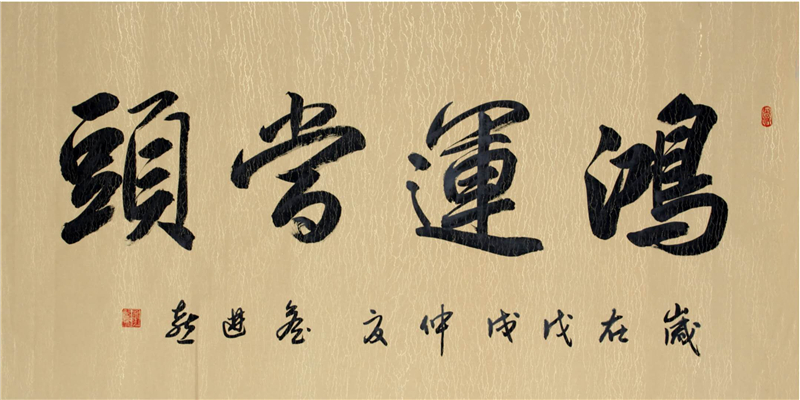 鴻運當頭
歲在戊戌仲夏